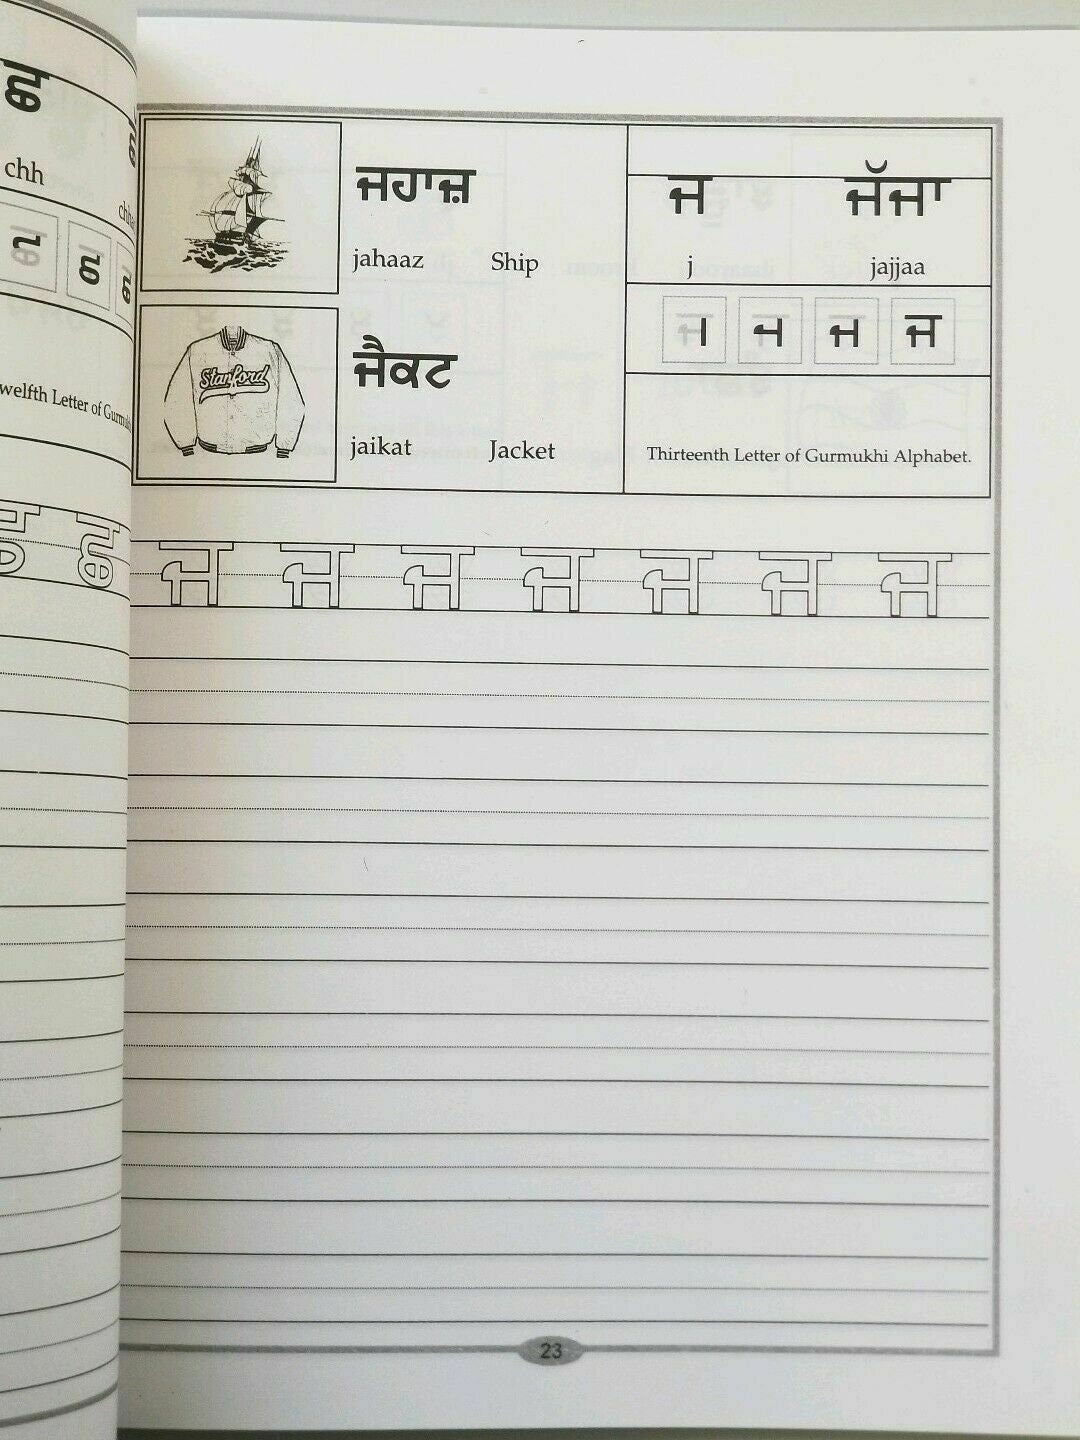 ਛ
chh
ਛ
welfth Letter of Gurmukhi
ਜਹਾਜ਼
jahaaz Ship
Stanford
ਜੈਕਟ
jaikat Jacket
ਜ ਜੱਜਾ
j jajjaa
ਜ
Thirteenth Letter of Gurmukhi Alphabet.
ਛ
ਜ ਜ ਜ ਜ ਜ ਜ ਜ
23